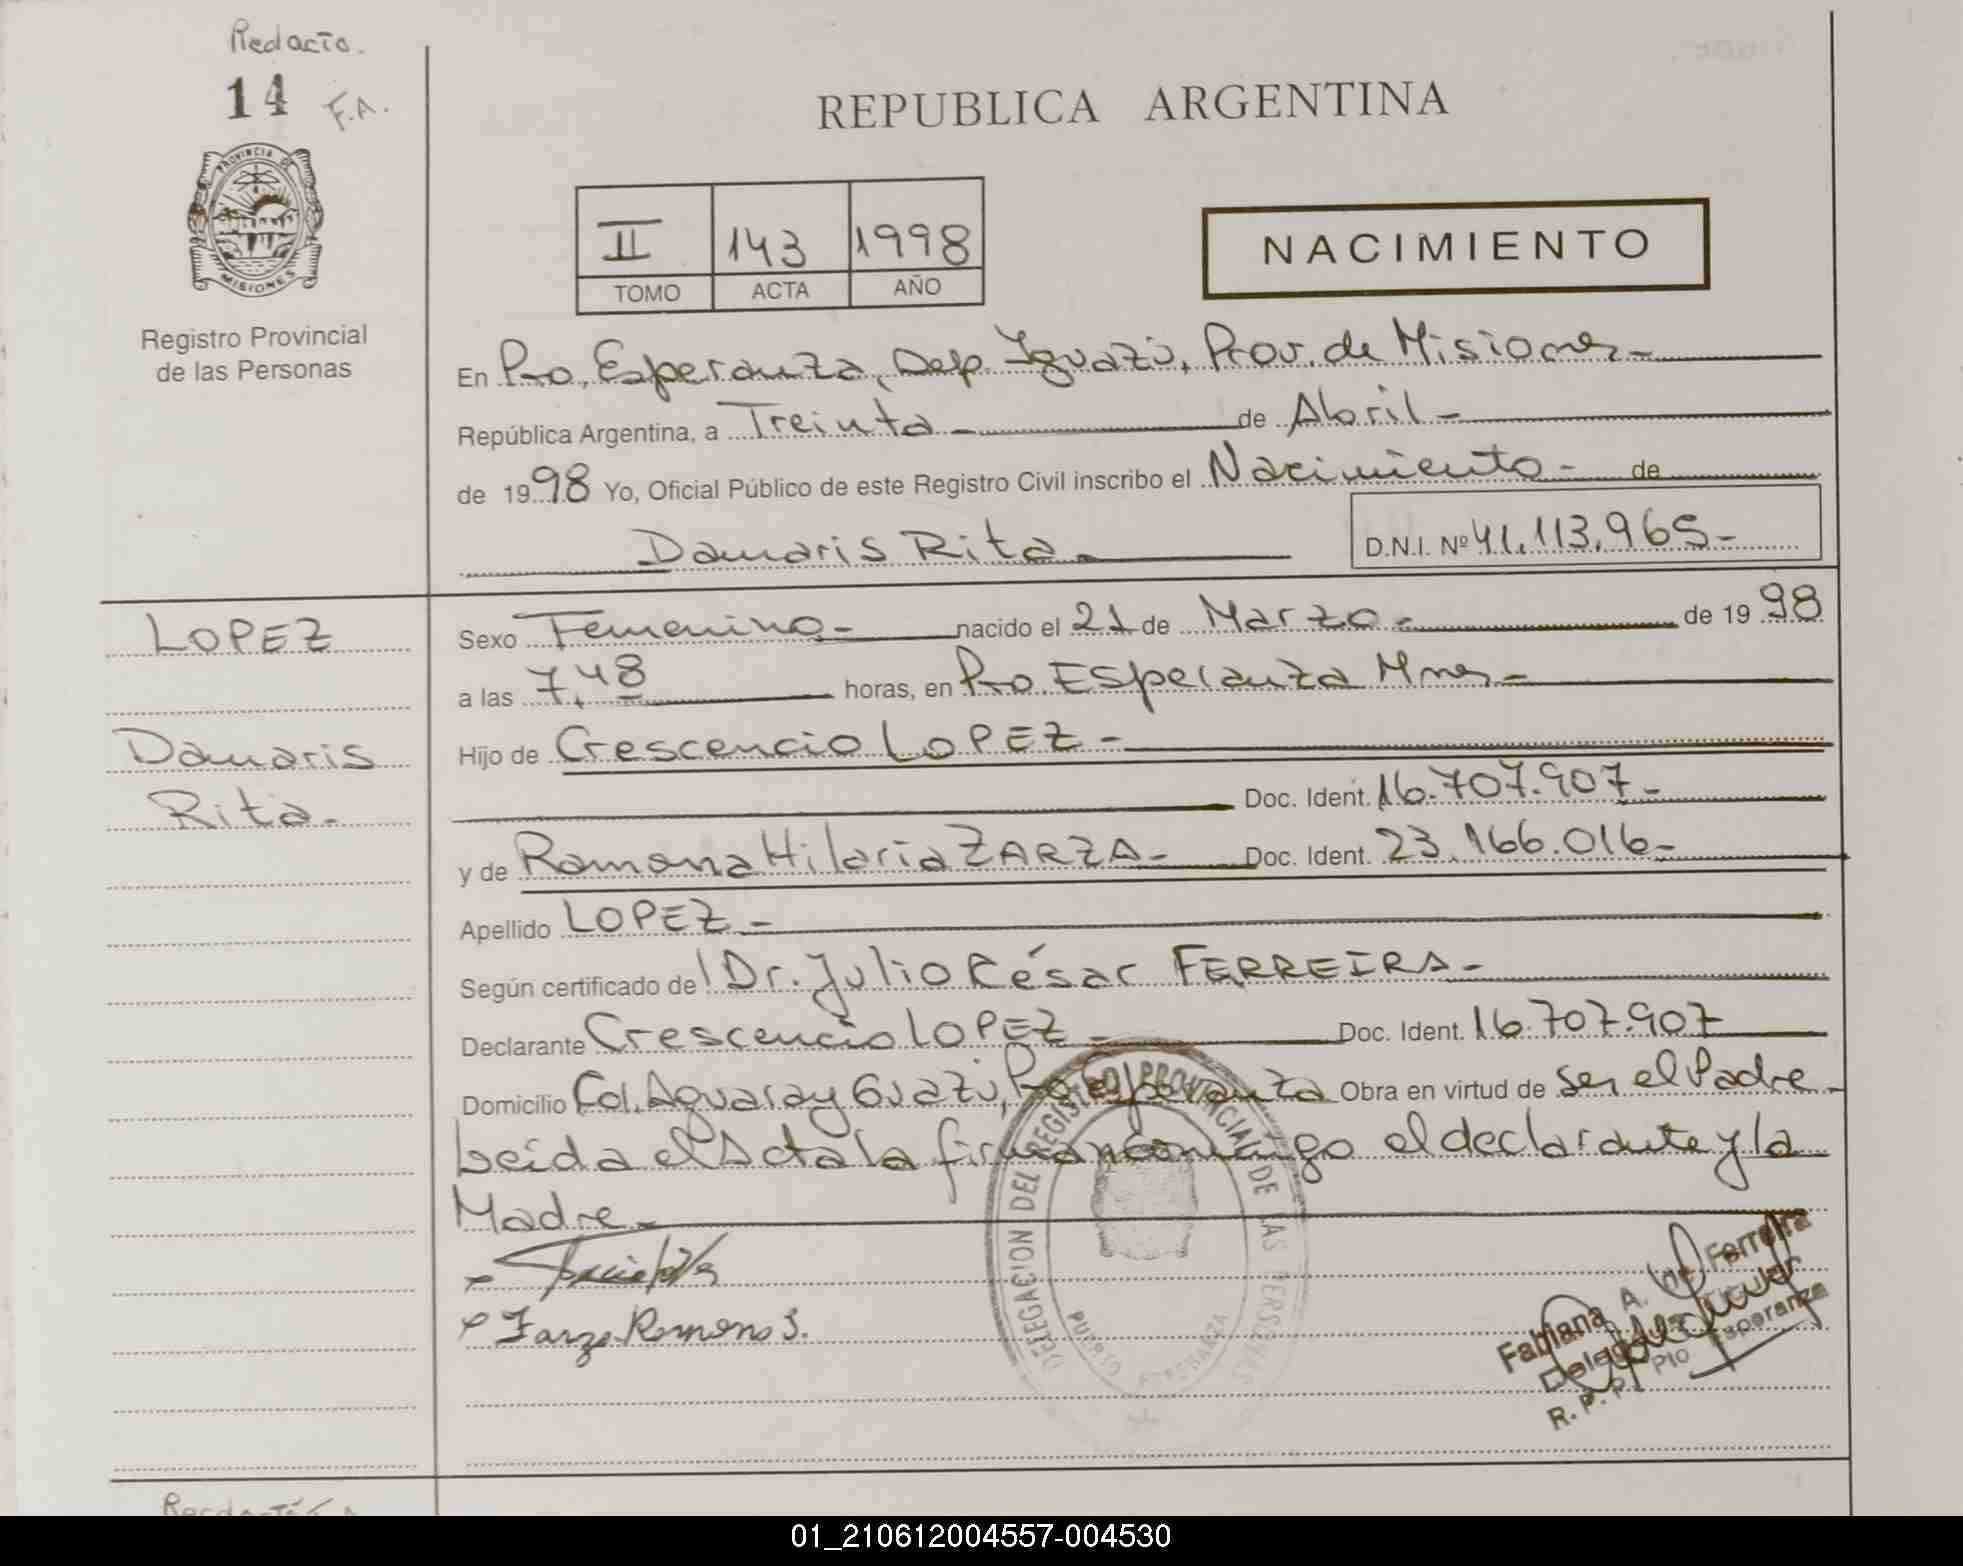 Redacto.
14 F.A.
PROVINCIA DE
MISIONES
Registro Provincial
de las Personas
REPUBLICA ARGENTINA
II 143 1998
TOMO ACTA AÑO
NACIMIENTO
En Pto. Esperanza, Dep. Iguazú, Prov. de Misiones-
República Argentina, a Treinta- de Abril-
de 1998 Yo, Oficial Público de este Registro Civil inscribo el Nacimiento- de
Damaris Rita-
D.N.I. Nº 41.113.965-
LOPEZ
Damaris
Rita-
Sexo Femenino- nacido el 21 de Marzo- de 1998
a las 7,48 horas, en Pto Esperanza Mnes-
Hijo de Crescencio LOPEZ-
Doc. Ident. 16.707.907-
y de Ramona Hilaria ZARZA- Doc. Ident. 23.166.016-
Apellido LOPEZ-
Según certificado del Dr. Julio César FERREIRA-
Declarante Crescencio LOPEZ- Doc. Ident. 16.707.907
Domicilio Col. Aguaray Guazú, Pto Esperanza Obra en virtud de ser el Padre-
Leida el Acta la firman conmigo el declarante y la
Madre-
Zarza Ramona
DELEGACION DEL REGISTRO PROVINCIAL DE LAS PERSONAS
PUERTO ESPERANZA
Fabiana A. de Ferreira
Delegada Titular
R.P.P. Pto Esperanza
01_210612004557-004530